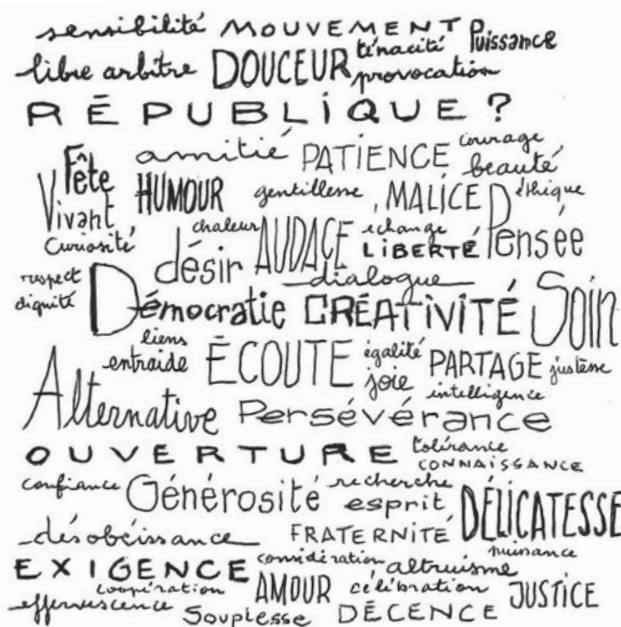 sensibilité MOUVEMENT Puissance
libre arbitre DOUCEUR ténacité provocation
RÉPUBLIQUE ?
amitié PATIENCE courage beauté
Fête Vivant HUMOUR gentillesse, MALICE éthique
curiosité chaleur AUDACE échange LIBERTÉ Pensée
désir dialogue
respect dignité Démocratie CRÉATIVITÉ Soin
liens entraide ÉCOUTE égalité joie PARTAGE justesse
intelligence
Alternative Persévérance
OUVERTURE tolérance CONNAISSANCE
confiance Générosité recherche esprit DÉLICATESSE
désobéissance FRATERNITÉ nuisance
EXIGENCE considération altruisme
coopération AMOUR célébration JUSTICE
effervescence Souplesse DÉCENCE